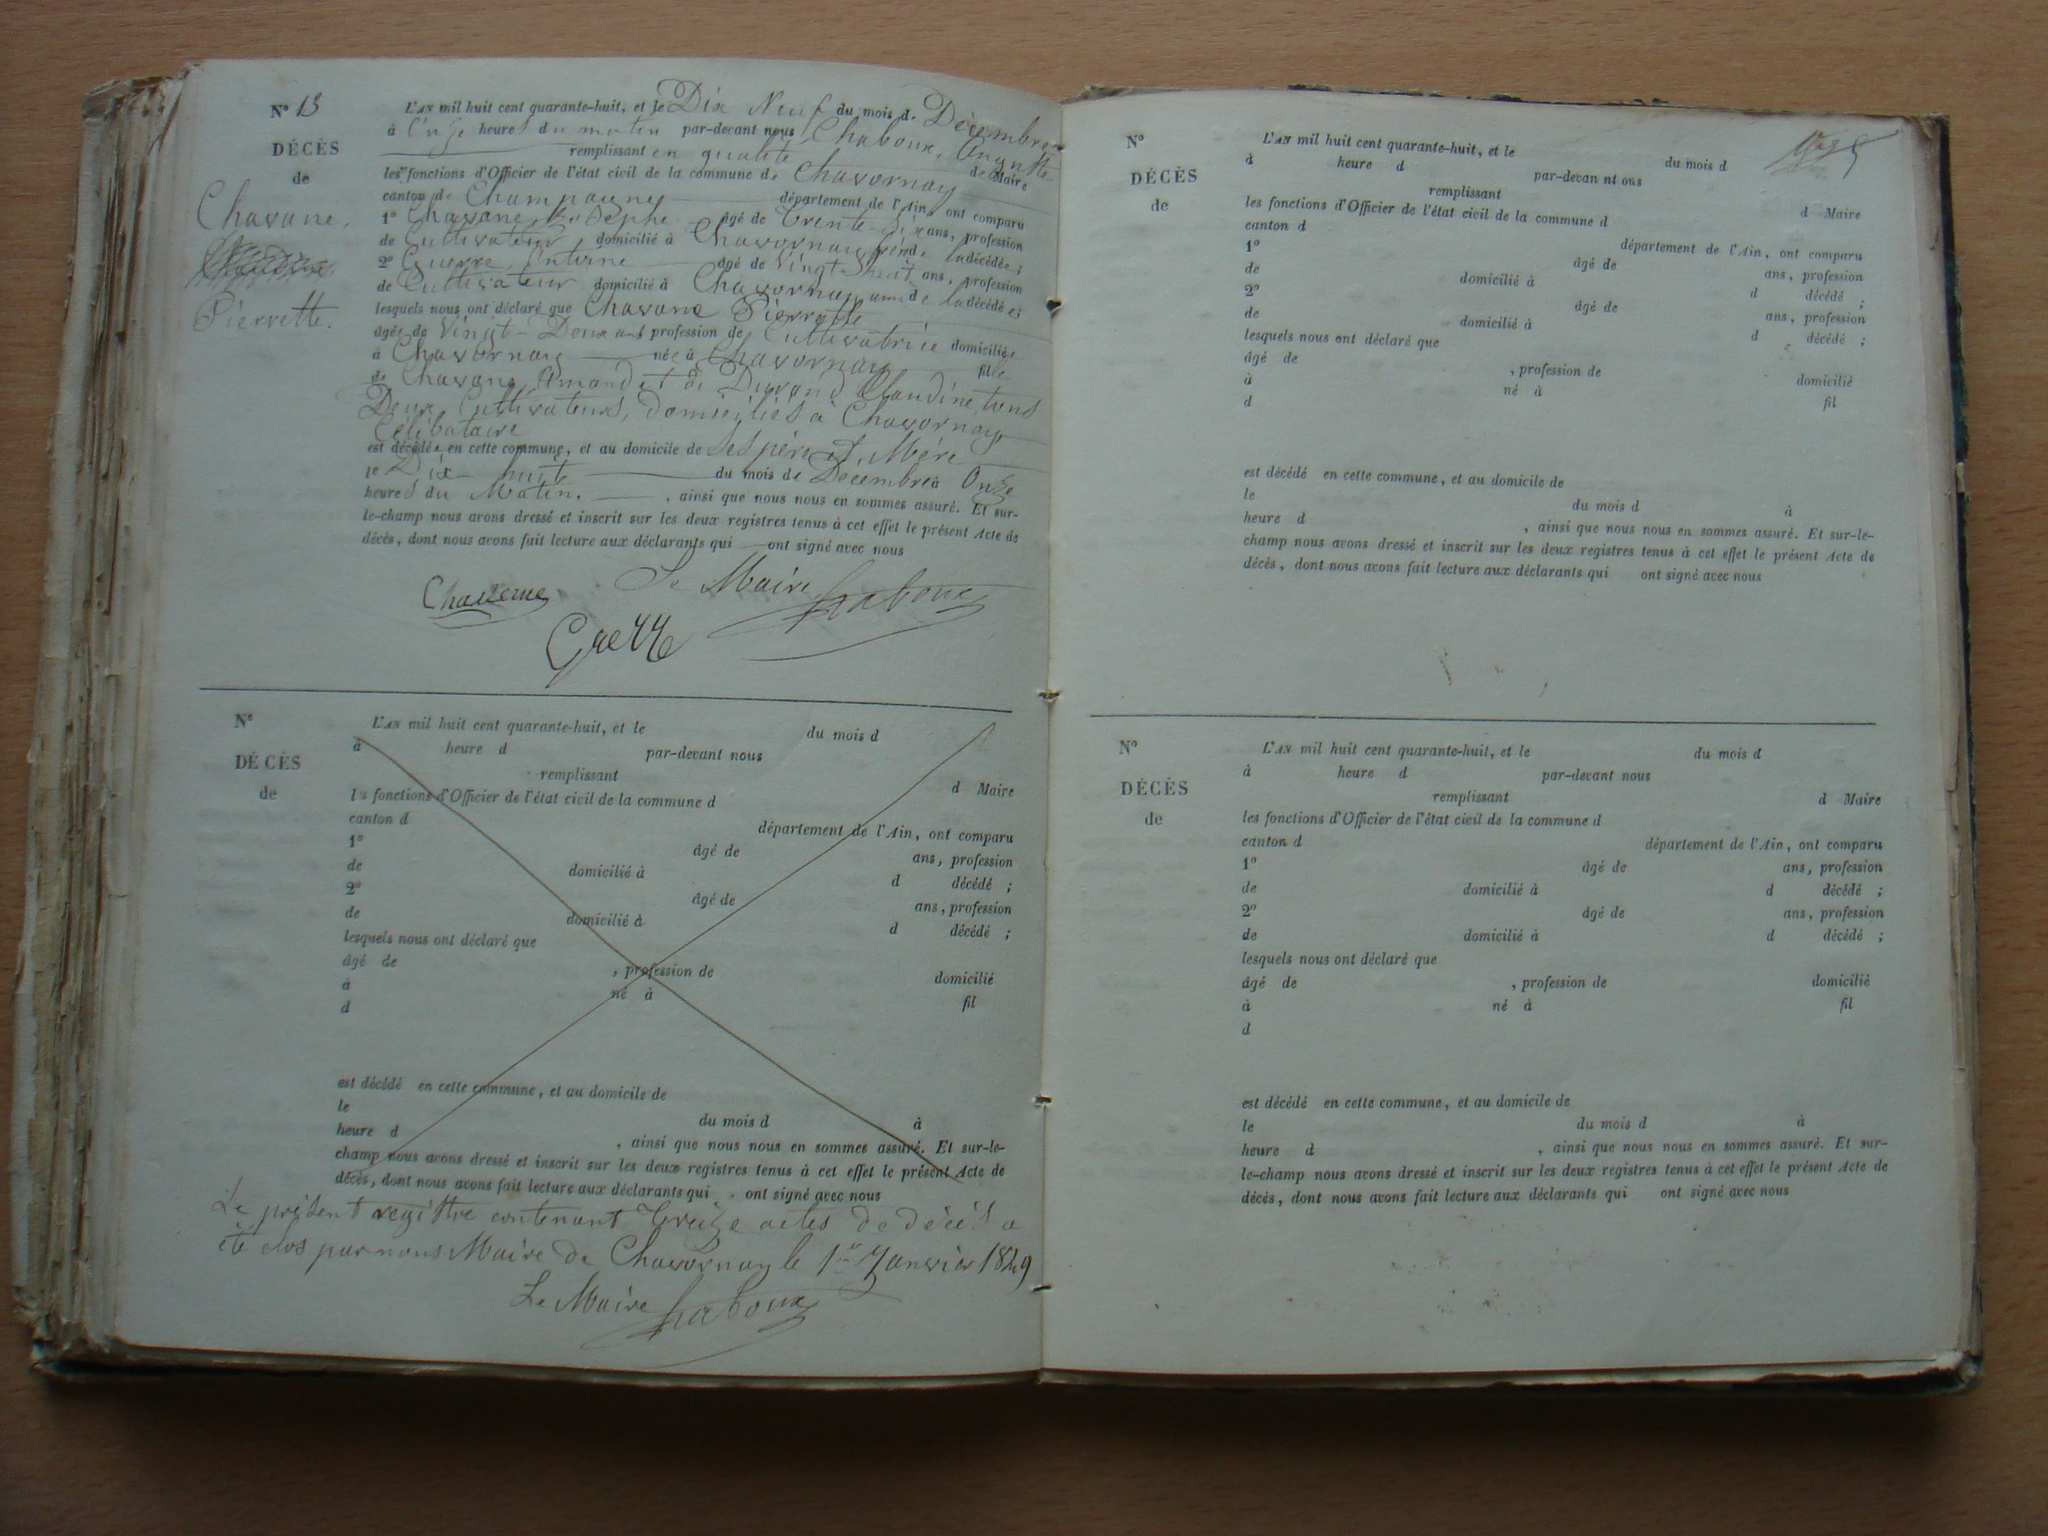 N° 13
L'AN mil huit cent quarante-huit, et le Dix Neuf du mois de Décembre
à Onze heures du matin par-devant nous Chaboux,
remplissant en qualité de Maire
DÉCÈS
de
Chavane,
Pierrette.
les fonctions d'Officier de l'état civil de la commune de Chavornay
canton de Champagne département de l'Ain, ont comparu
1° Chavane, Joseph âgé de Trente-dix ans, profession
de Cultivateur domicilié à Chavornay frère de la décédée;
2° Guerre, Antoine âgé de Vingt-huit ans, profession
de Cultivateur domicilié à Chavornay ami de la décédée;
lesquels nous ont déclaré que Chavane Pierrette
âgée de Vingt-Deux ans profession de Cultivatrice domiciliée
à Chavornay née à Chavornay fille
de Chavane Amand et de Durand Claudine tous
Deux Cultivateurs, domiciliés à Chavornay
Célibataire
est décédée en cette commune, et au domicile de ses père et Mère
le Dix-huit du mois de Décembre à Onze
heures du Matin. , ainsi que nous nous en sommes assuré. Et sur-
le-champ nous avons dressé et inscrit sur les deux registres tenus à cet effet le présent Acte de
décès, dont nous avons fait lecture aux déclarants qui ont signé avec nous
Le Maire Chaboux
Chavane
Guerre
N°
L'AN mil huit cent quarante-huit, et le du mois d
à heure d par-devant nous
DÉCÈS
remplissant d Maire
de
les fonctions d'Officier de l'état civil de la commune d
canton d département de l'Ain, ont comparu
1° âgé de ans, profession
de domicilié à d décédé ;
2° âgé de ans, profession
de domicilié à d décédé ;
lesquels nous ont déclaré que
âgé de , profession de domicilié
à né à fil
d
est décédé en cette commune, et au domicile de
le du mois d à
heure d , ainsi que nous nous en sommes assuré. Et sur-le-
champ nous avons dressé et inscrit sur les deux registres tenus à cet effet le présent Acte de
décès, dont nous avons fait lecture aux déclarants qui ont signé avec nous
Le présent registre contenant Treize actes de décès a
été clos par nous Maire de Chavornay le 1er Janvier 1849
Le Maire Chaboux
N°
L'AN mil huit cent quarante-huit, et le du mois d
à heure d par-devan nt ons
DÉCÈS
remplissant d Maire
de
les fonctions d'Officier de l'état civil de la commune d
canton d département de l'Ain, ont comparu
1° âgé de ans, profession
de domicilié à d décédé ;
2° âgé de ans, profession
de domicilié à d décédé ;
lesquels nous ont déclaré que
âgé de , profession de domicilié
à né à fil
d
est décédé en cette commune, et au domicile de
le du mois d à
heure d , ainsi que nous nous en sommes assuré. Et sur-le-
champ nous avons dressé et inscrit sur les deux registres tenus à cet effet le présent Acte de
décès, dont nous avons fait lecture aux déclarants qui ont signé avec nous
N°
L'AN mil huit cent quarante-huit, et le du mois d
à heure d par-devant nous
DÉCÈS
remplissant d Maire
de
les fonctions d'Officier de l'état civil de la commune d
canton d département de l'Ain, ont comparu
1° âgé de ans, profession
de domicilié à d décédé ;
2° âgé de ans, profession
de domicilié à d décédé ;
lesquels nous ont déclaré que
âgé de , profession de domicilié
à né à fil
d
est décédé en cette commune, et au domicile de
le du mois d à
heure d , ainsi que nous nous en sommes assuré. Et sur-
le-champ nous avons dressé et inscrit sur les deux registres tenus à cet effet le présent Acte de
décès, dont nous avons fait lecture aux déclarants qui ont signé avec nous